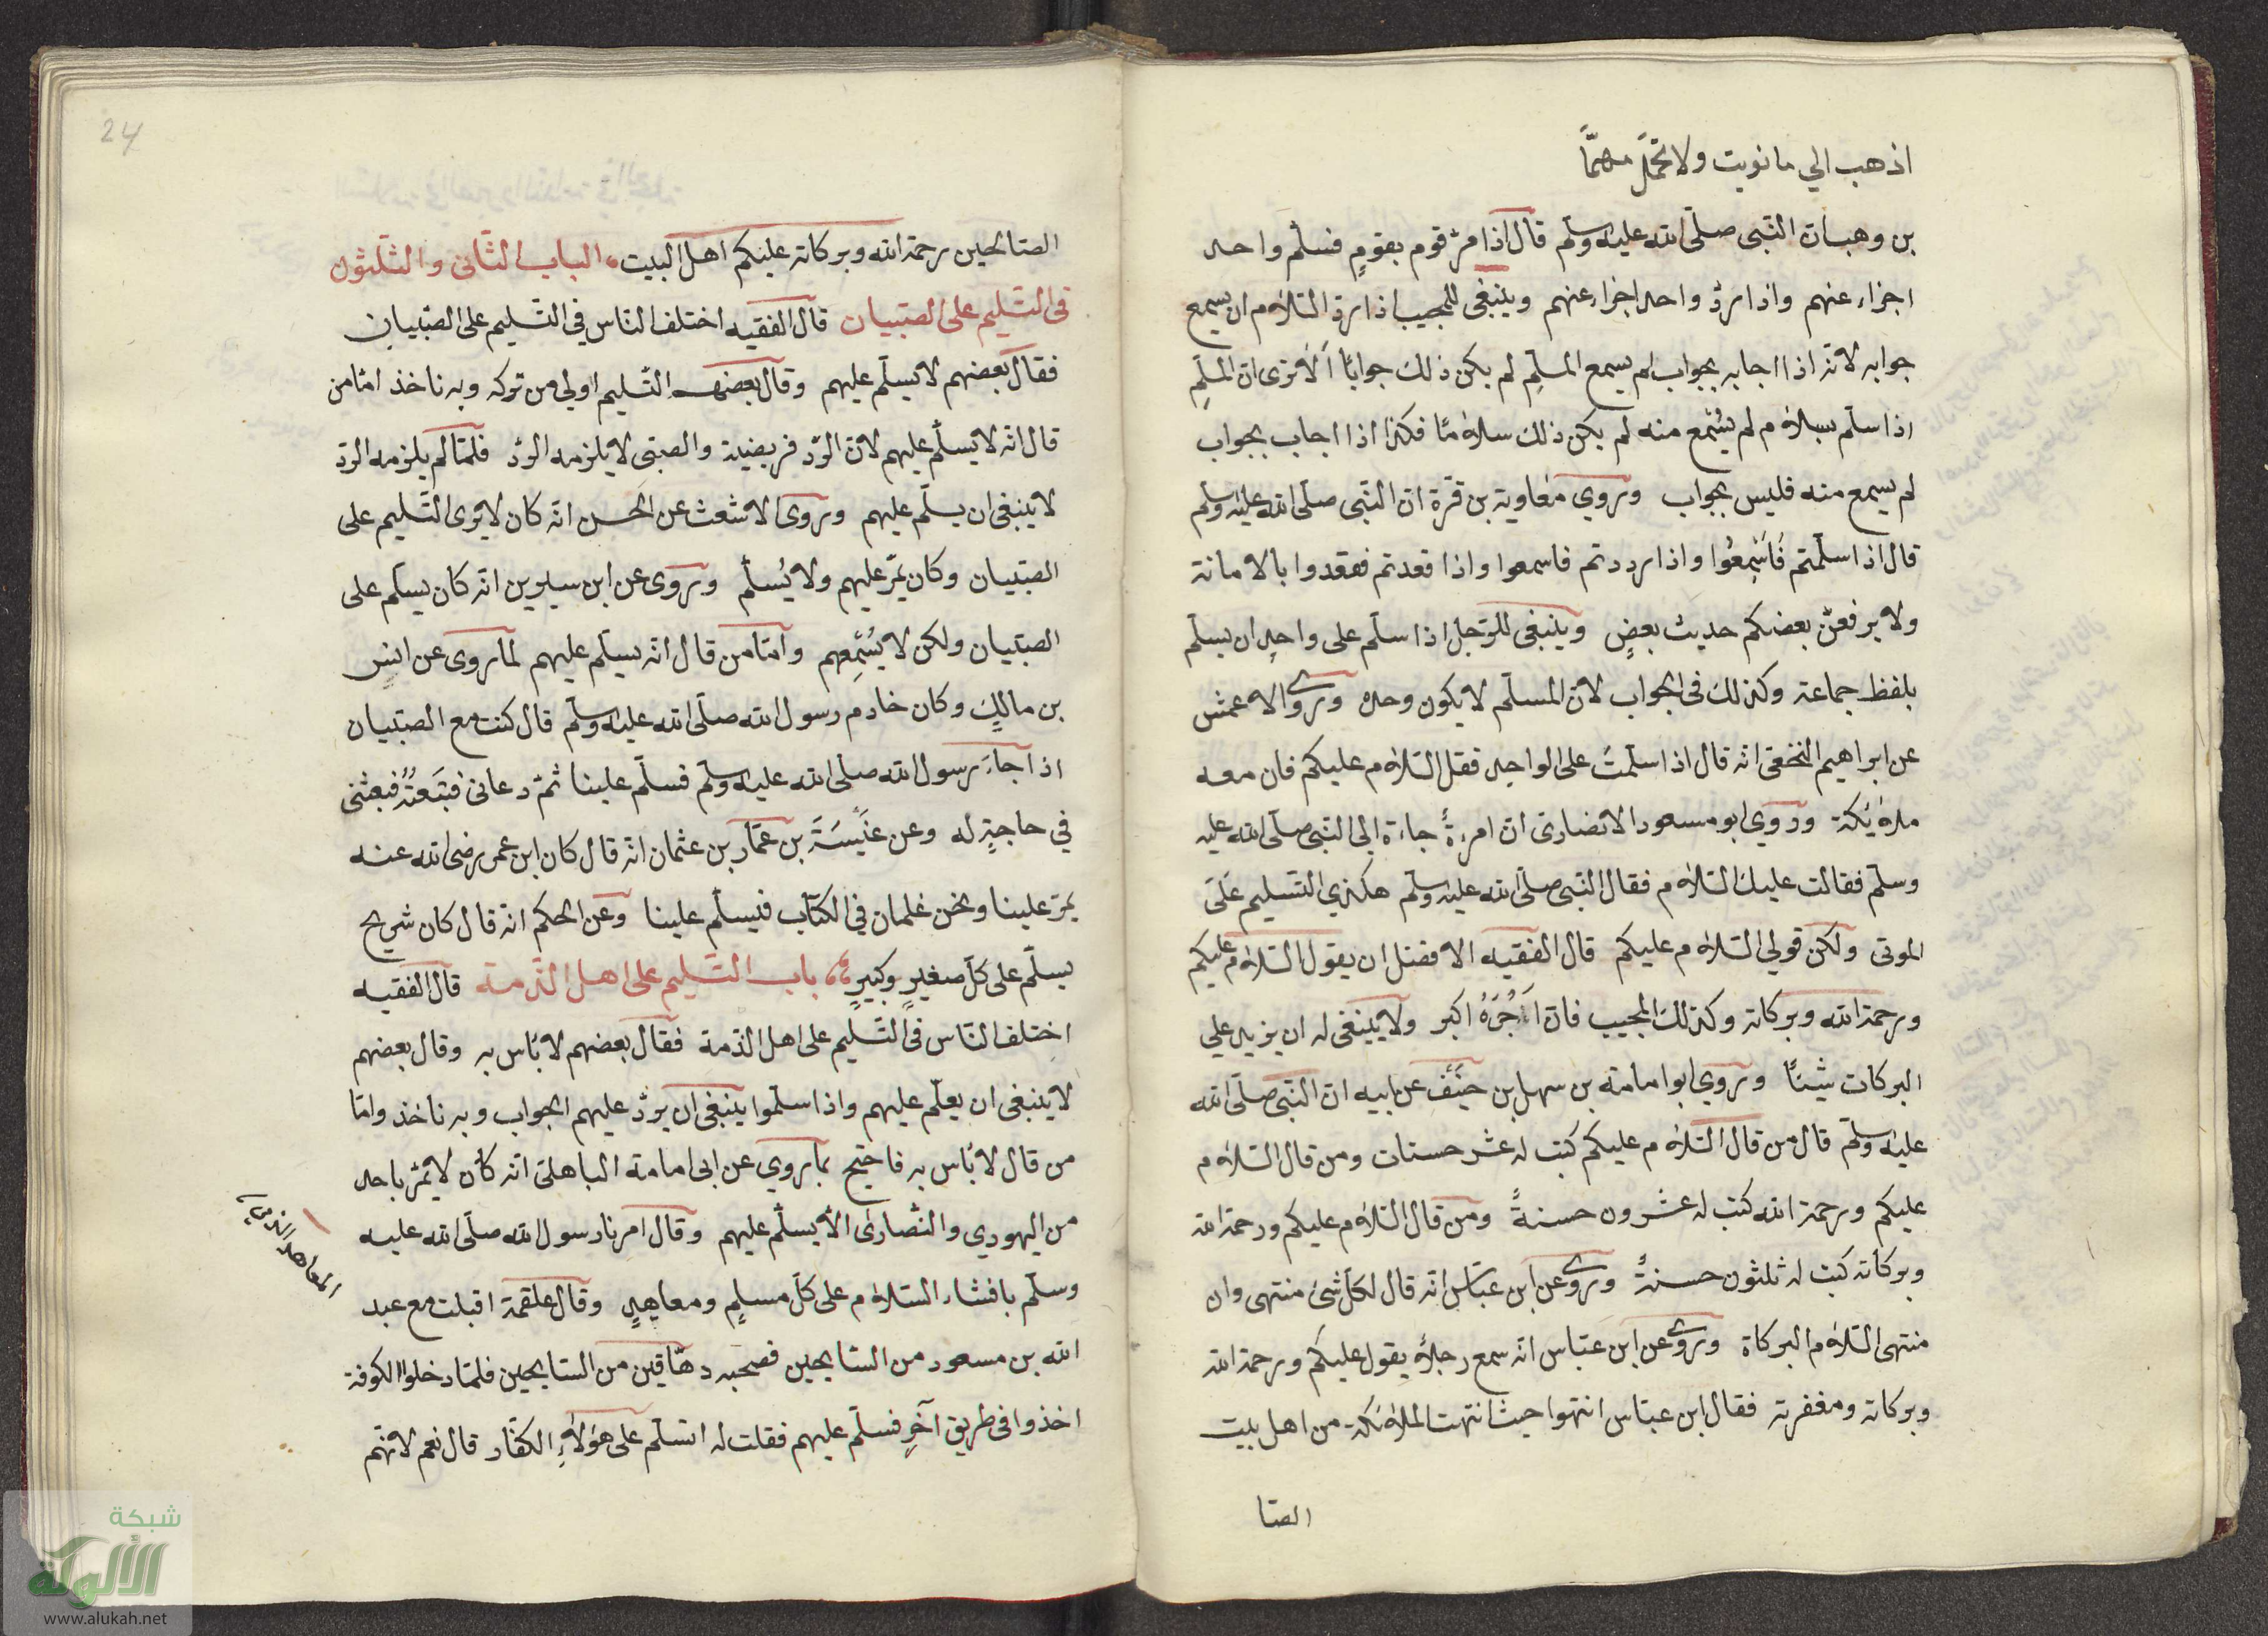 اذهب الي ما نويت ولا تحمّل همّاً
بن وهب ان النّبى صلّى الله عليه وسلّم قال اذا مرّ قوم بقومٍ فسلّم واحد
اجزاء عنهم واذا ردّ واحد اجزاء عنهم وينبغى للمجيب اذا ردّ السّلام ان يسمع
جوابه لانّه اذا اجابه بجواب لم يسمع المسلّم لم يكن ذلك جواباً ألا ترى انّ المسلّم
اذا سلّم بسلام لم يُسمع منه لم يكن ذلك سلاماً فكذا اذا اجاب بجواب
لم يسمع منه فليس بجواب وروي معاوية بن قرّة انّ النّبى صلّى الله عليه وسلم
قال اذا سلّمتم فأسمِعُوا واذا رددتم فاسمعوا واذا قعدتم فقعدوا بالامانة
ولا يرفعنّ بعضكم حديث بعضٍ وينبغى للرّجل اذا سلّم على واحدٍ ان يسلّم
بلفظ جماعة وكذلك فى الجواب لانّ المسلّم لا يكون وحده وروى الاعمش
عن ابراهيم النخعى انّه قال اذا سلّمتَ على الواحد فقل السّلام عليكم فان معه
ملائكة وروي ابو مسعود الانصارى انّ امرءةً جاءة الى النّبى صلّى الله عليه
وسلّم فقالت عليك السّلام فقال النّبى صلّى الله عليه وسلّم هكذي التّسليم عَلَى
الموتى ولكن قولي السّلام عليكم قال الفقيه الافضل ان يقول السّلام عليكم
ورحمة الله وبركاته وكذلك المجيب فانّ اَجْرَهُ اكبر ولا يينغى له ان يزيد علي
البركات شيئاً وروي ابو امامة بن سهل بن حنَيْف عن ابيه انّ النّبى صلّى الله
عليه وسلّم قال من قال السّلام عليكم كتب له عشر حسنات ومن قال السّلام
عليكم ورحمة الله كتب له عشرون حسنةً ومن قال السّلام عليكم ورحمة الله
وبركاته كتب له ثلثون حسنةً وروى عن ابن عبّاس انّه قال لكلّ شئ منتهى وان
منتهى السّلام البركاة وروى عن ابن عبّاس انّه سمع رجلاً يقول عليكم ورحمة الله
وبركاته ومغفرته فقال ابن عبّاس انتهوا حيث انتهت الملائكة من اهل بيت
الصّا
24
الصّالحين رحمة الله وبركاته عليكم اهل البيت الباب الثّانى والثّلثون
فى التّسليم على الصّبيان قال الفقيه اختلف النّاس في التّسليم على الصّبيان
فقال بعضهم لا يسلّم عليهم وقال بعضهم التّسليم اولى من تركه وبه ناخذ امّا من
قال انّه لا يسلّم عليهم لانّ الرّد فريضة والصّبى لا يلزمه الرّد فلمّا لم يلزمه الرّد
لا ينبغى ان يسلّم عليهم وروى الاشعث عن الحسن انّه كان لا يرى التّسليم على
الصّبيان وكان يمرّ عليهم ولا يُسلّم وروى عن ابن سيرين انّه كان يسلّم على
الصّبيان ولكن لا يُسْمِعهم وامّا من قال انّه يسلّم عليهم لما روى عن انس
بن مالكٍ وكان خادم رسول الله صلّى الله عليه وسلّم قال كنت مع الصّبيان
اذا جاءَ رسول الله صلّى الله عليه وسلّم فسلّم علينا ثمّ دعانى فتبَعتُهُ فبعثنى
في حاجةٍ له وعن عنبسة بن عمّار بن عثمان انّه قال كان ابن عمر رضى الله عنه
يمرّ علينا ونحن غلمان في الكتّاب فيسلّم علينا وعن الحكم انّه قال كان شريح
يسلّم على كلّ صغيرٍ وكبيرٍ باب التّسليم على اهل الذّمة قال الفقيه
اختلف النّاس فى التّسليم على اهل الذّمة فقال بعضهم لا بأس به وقال بعضهم
لا ينبغى ان يعلّم عليهم واذا سلّموا ينبغى ان يردّ عليهم الجواب وبه ناخذ وامّا
من قال لا بأس به فاحتجّ بما روي عن ابى امامة الباهلى انّه كان لا يمرّ باحد
من اليهودي والنّصارى الاّ يسلّم عليهم وقال امرنا رسول الله صلّى الله عليه
وسلّم بافشاء السّلام على كلّ مسلمٍ ومعاهدٍ وقال علقمة اقبلت مع عبد
الله بن مسعود من السّايحين فصحبه دهّاقين من السّايحين فلمّا دخلوا الكوفة
اخذوا فى طريق آخرٍ فسلّم عليهم فقلت له اتسلّم على هؤلاءِ الكفّار قال نعم لانّهم
شبكة
الألوكة
www.alukah.net